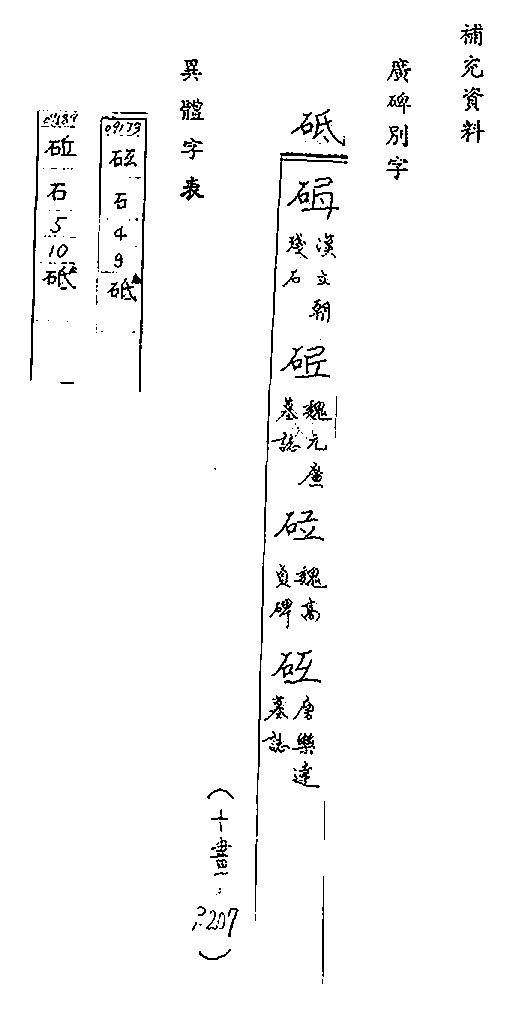 補充資料
廣碑別字
砥
漢立朝
殘石
魏元
墓誌
魏高
貞碑
唐樂達
墓誌
（十畫．P.207）
異體字表
09173
石
4
9
砥
石
5
10
砥